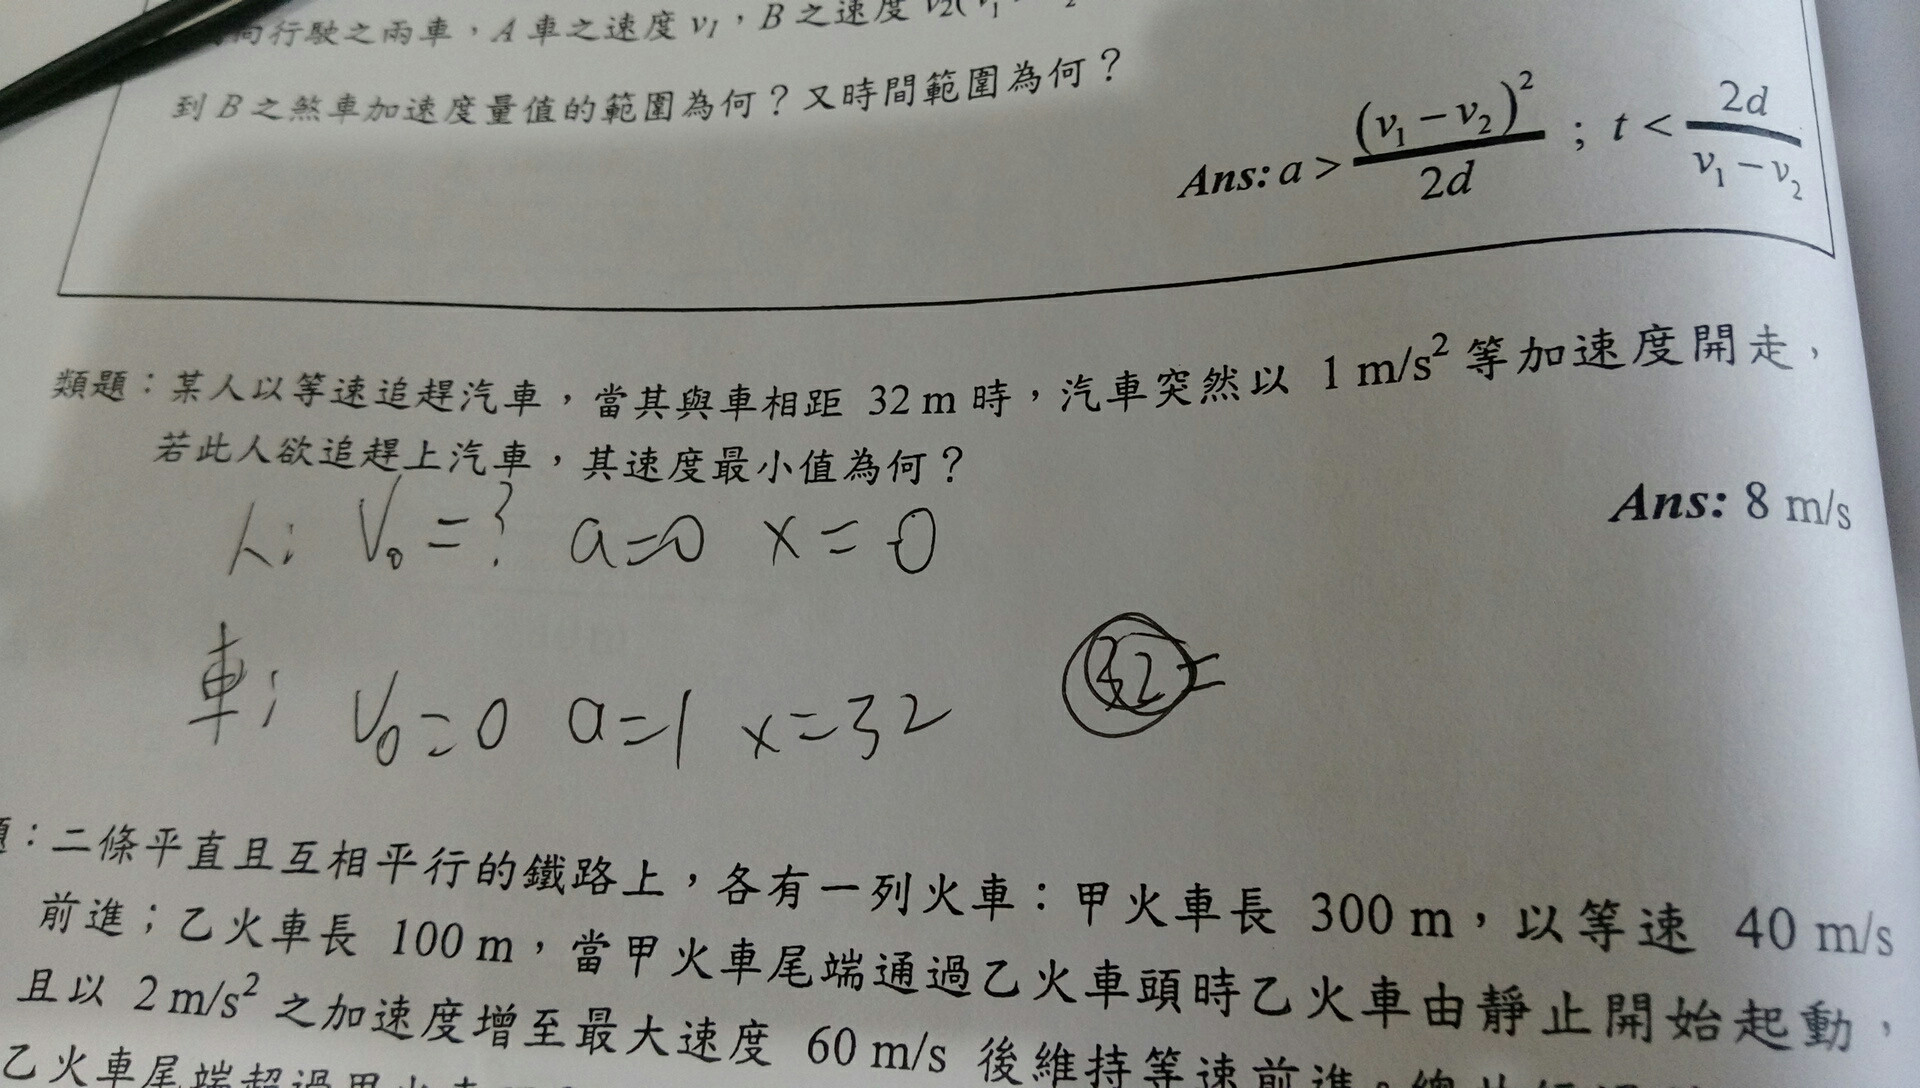 向行駛之兩車，A 車之速度 v₁，B 之速度 v₂(v₁
到 B 之煞車加速度量值的範圍為何？又時間範圍為何？
Ans: a > (v₁ − v₂)² / 2d ; t < 2d / (v₁ − v₂)
類題：某人以等速追趕汽車，當其與車相距 32 m 時，汽車突然以 1 m/s² 等加速度開走，
若此人欲追趕上汽車，其速度最小值為何？
Ans: 8 m/s
人: V₀ = ? a=0 x = 0
車; V₀=0 a=1 x=32
32=
題：二條平直且互相平行的鐵路上，各有一列火車：甲火車長 300 m，以等速 40 m/s
前進；乙火車長 100 m，當甲火車尾端通過乙火車頭時乙火車由靜止開始起動，
且以 2 m/s² 之加速度增至最大速度 60 m/s 後維持等速前進。
乙火車尾端超過甲火車